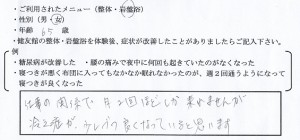 ・ご利用されたメニュー(整体・岩盤浴)
・性別(男・女)
・年齢 65 歳
・健友館の整体・岩盤浴を体験後、症状が改善したことがありましたらご記入下さい。
例
糖尿病が改善した ・腰の痛みで夜中に何回も起きていたのがなくなった
寝つきが悪く布団に入ってもなかなか眠れなかったのが、週2回通うようになって
寝つきが良くなった
仕事の関係で月2回ほどしか来れませんが
少し良くなっていると思います